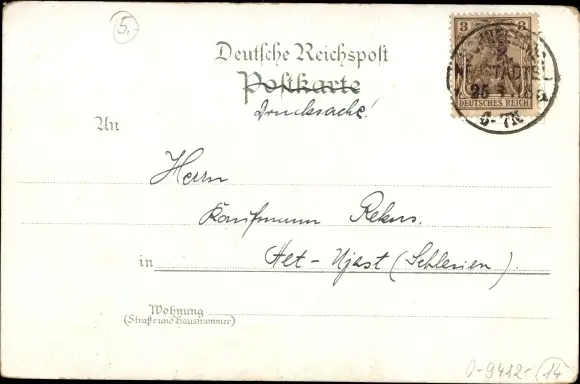 5.
3 3
Deutsche Reichspost
Postkarte
DEUTSCHES REICH
Drucksache!
6-7N
An
Herrn
Kaufmann Rekus.
in Alt-Ujast (Schlesien)
Wohnung
(Straße und Hausnummer)
0-9412- 14